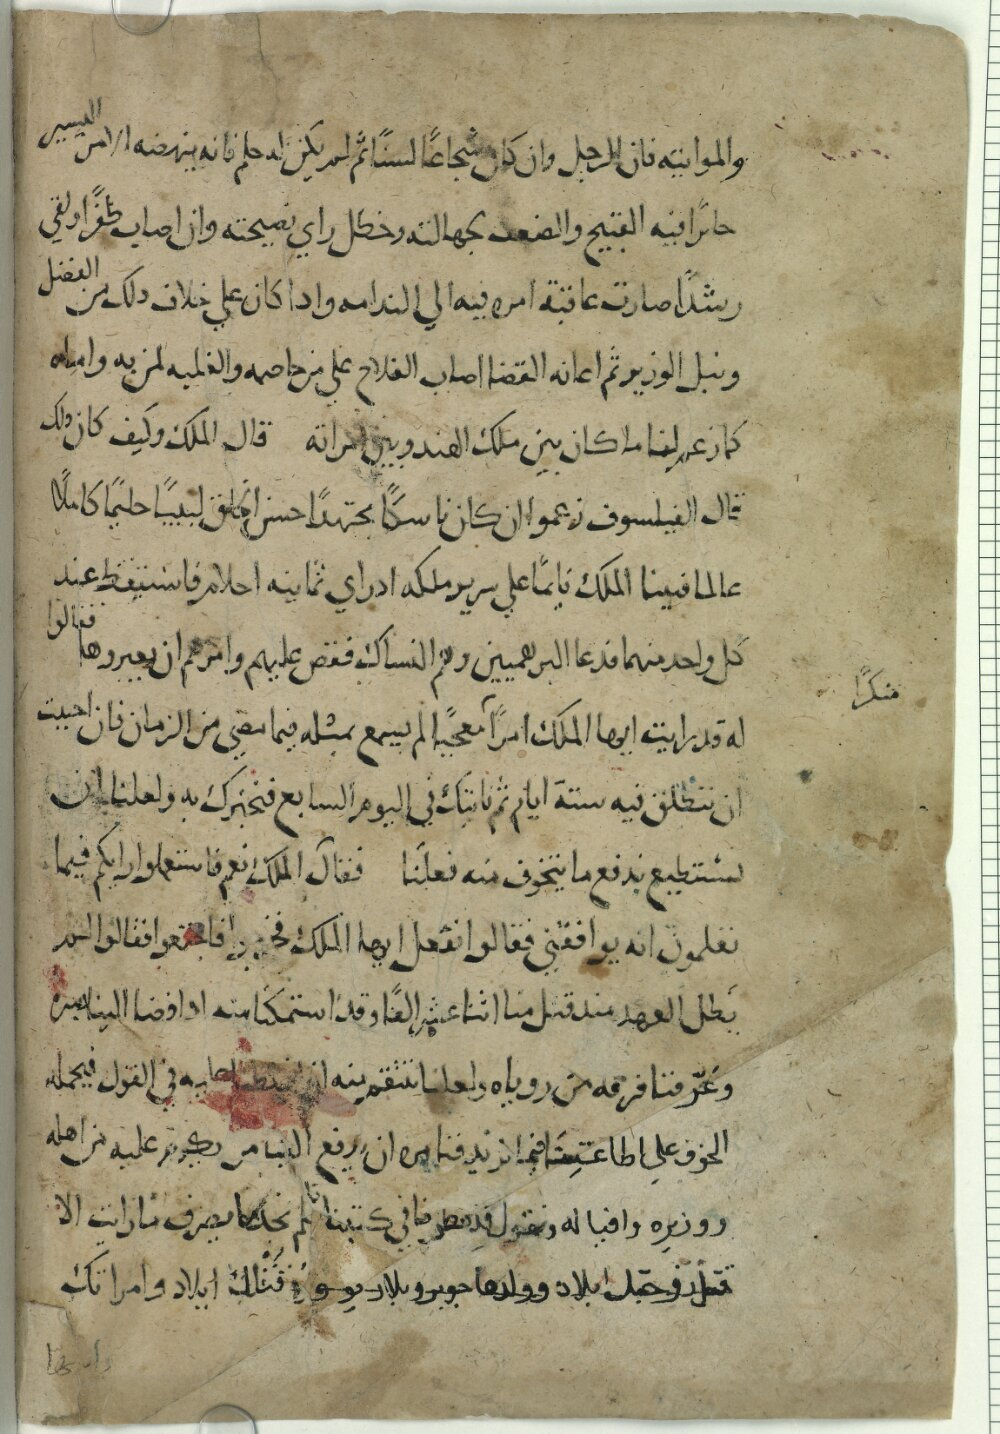 والمواتيه فان الرجل وان كان شجاعًا لسنًا ثم لم يكن له حلم فانه ينهضه الامر اليسير
حائرًا فيه القبيح والضعف بجهالته وخطل راي نصيحته وان اصاب ظفرًا ولقي
رشدًا صارت عاقبة امره فيه الي الندامه واذا كان علي خلاف ذلك من الفضل
ونبل الوزير ثم اعانه القضا اصاب الفلاح علي من خاصمه والغلبه لمن
كما زعم لنا ما كان بين ملك الهند وبين امراته قال الملك وكيف كان ذلك
قال الفيلسوف زعموا ان كان ناسكًا مجتهدًا حسن الخلق لبيبًا حليمًا كاملًا
عالما فبينا الملك نايمًا علي سرير ملكه اذ راي ثمانيه احلام فاستيقظ عند
كل واحد منهما فدعا البرهميين وهم النساك فقص عليهم وامرهم ان يعبروها فقالوا
له قد رايت ايها الملك امرًا معجبًا لم يسمع بمثله فيما مضي من الزمان فان احببت
منكرًا
ان ننطلق فيه ستة ايام ثم ناتيك في اليوم السابع فنخبرك به ولعلنا ان
نستطيع ندفع ما يتخوف منه فعلنا فقال الملك نعم فاستعملوا رايكم فيما
تعلمون انه يوافقني فقالوا نفعل ايها الملك فخرجوا فاجتمعوا فقالوا لم
يطل العهد منذ قتل منا اثنا عشر الفًا وقد استمكنا منه اذ افضا الينا بسره
وعرفنا فرقه من روياه ولعلنا ننتقم منه ان في القول فيحمله
الخوف علي اطاعتنا فيما نريد فنامره ان يدفع الينا من يكرم عليه من اهله
ووزيره واقباله ونقول قد نظرنا في كتبنا فلم نجد ما يصرف ما رايت الا
قتل ابلاد وولدها جوبر وبلاد قتلك ابلاد وامراتك